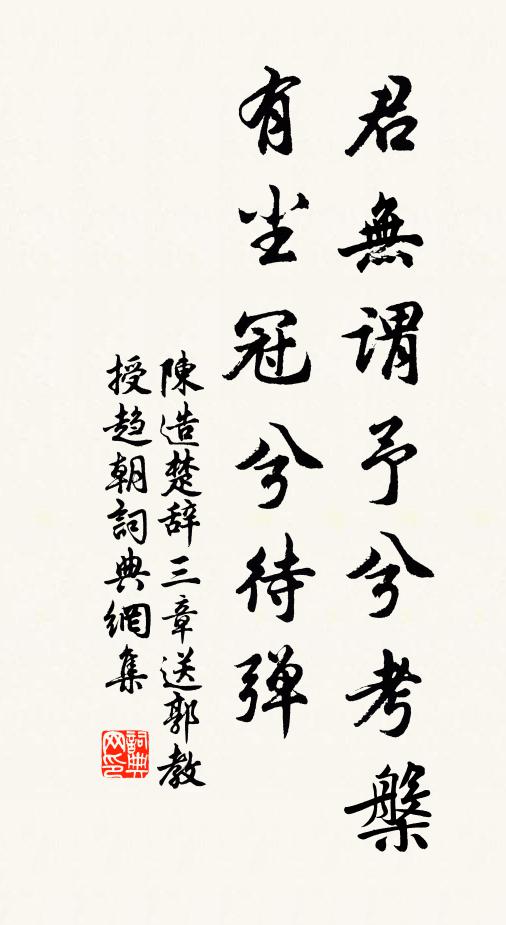 君無謂予兮考槃
有尘冠兮待弾
陳造楚辞三章送郭教
授趋朝詞典網集
詞典
网印